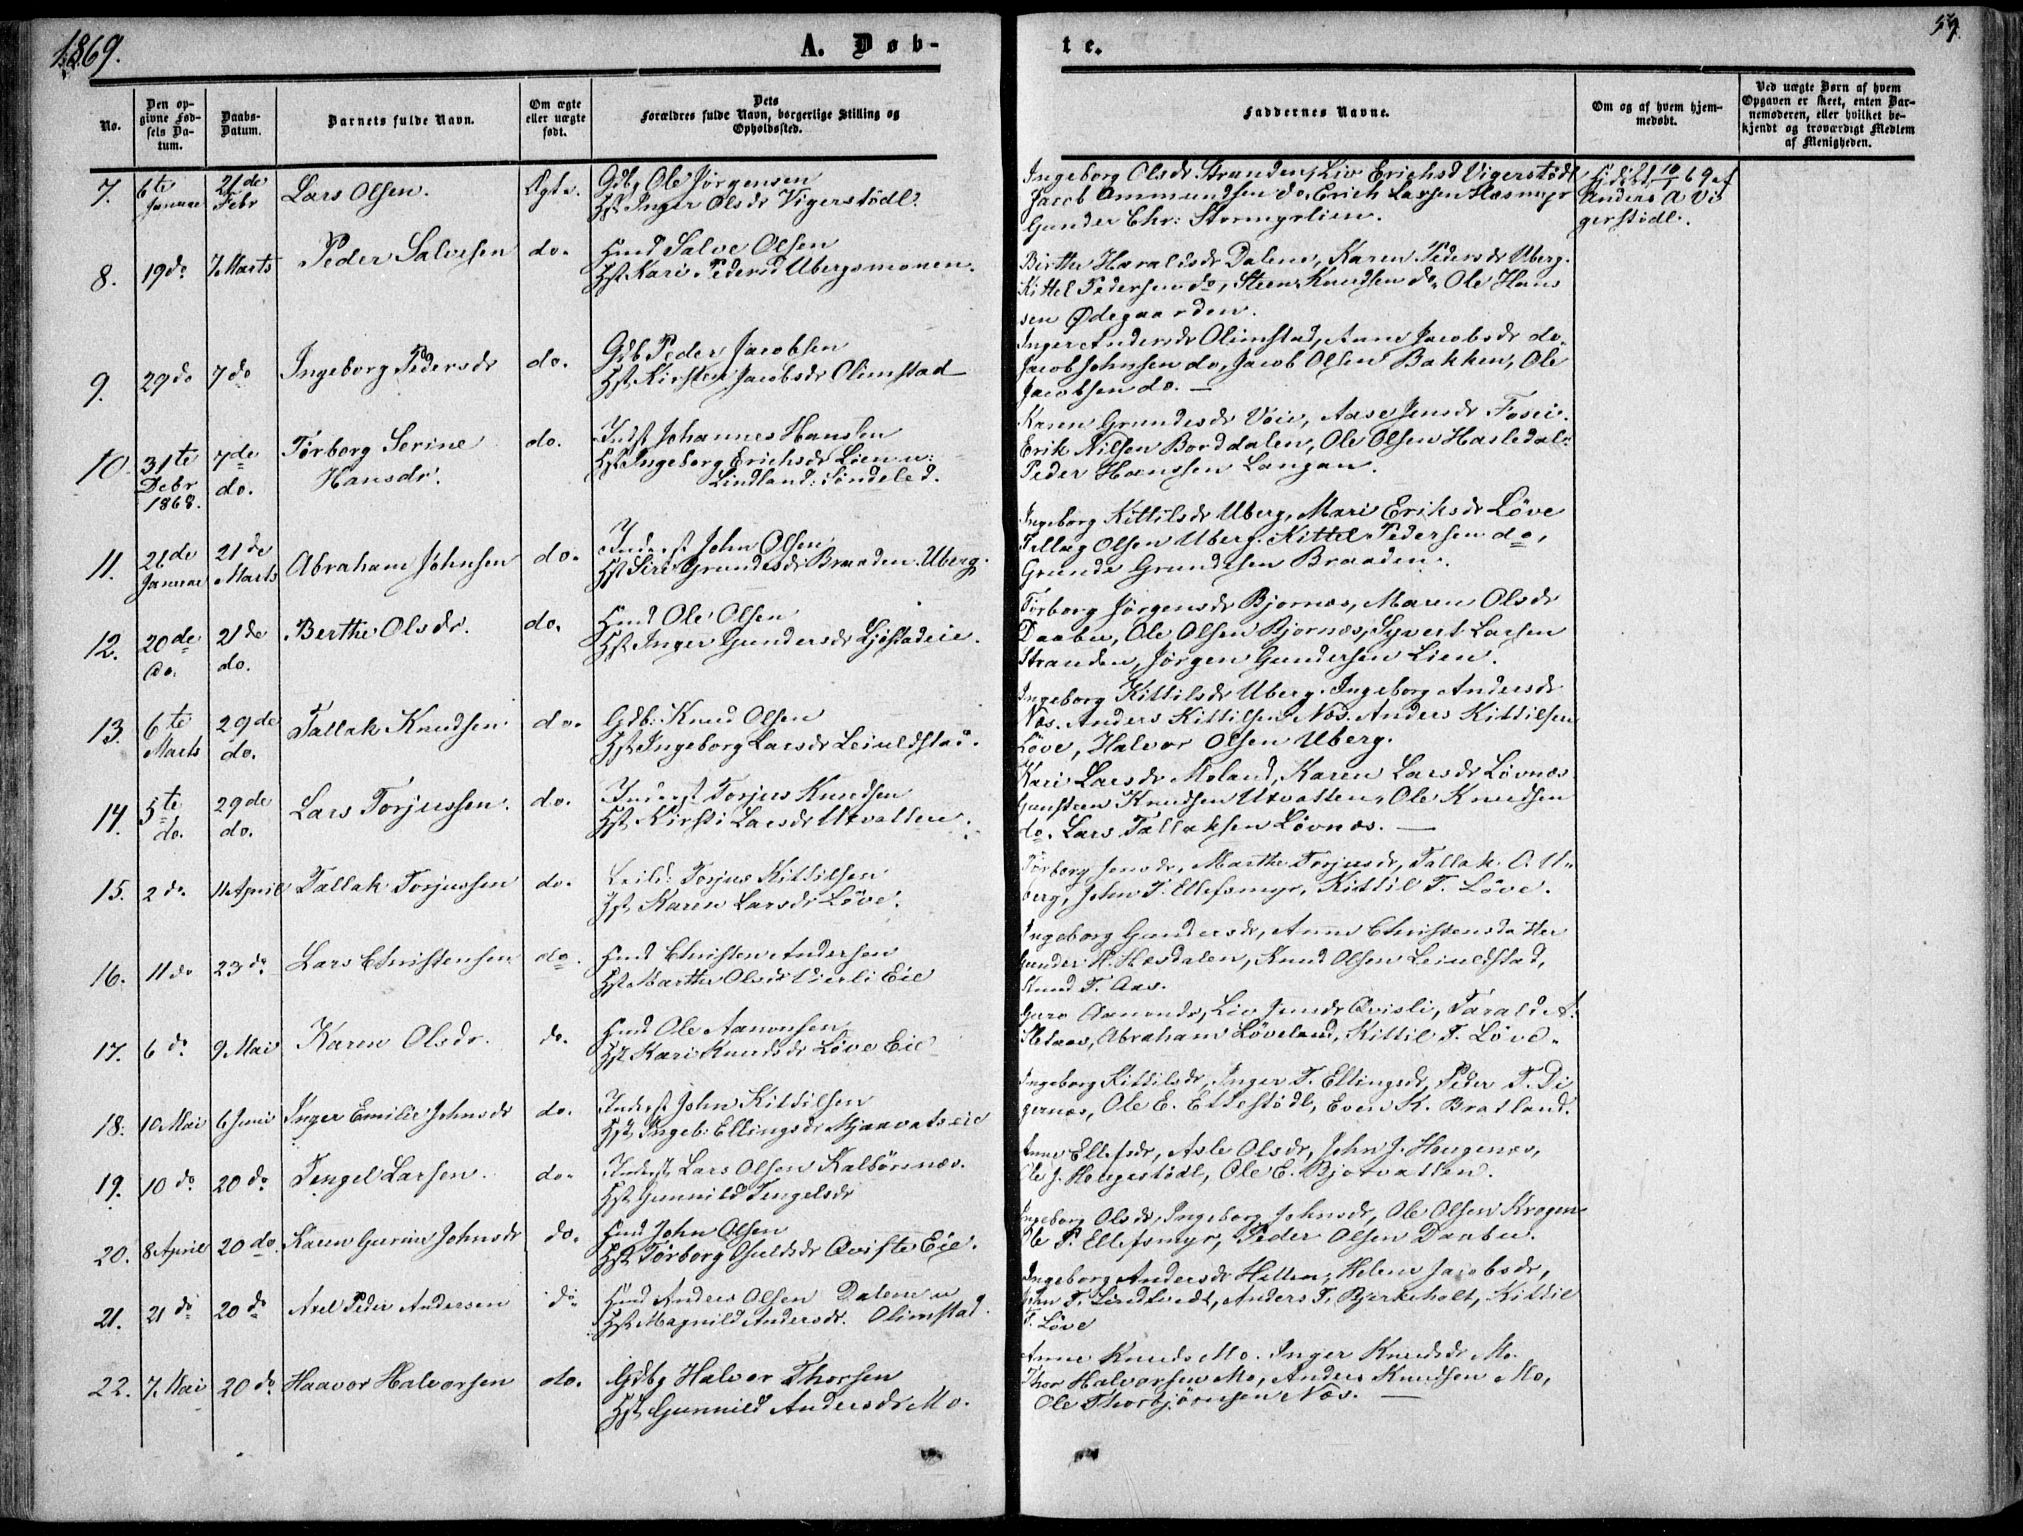 1869.
A. Døb-
te.
59
No.
Den op-
givne Fød-
sels Da-
tum.
Daabs-
Datum.
Barnets fulde Navn.
Om ægte
eller uægte
født.
Dets
Forældres fulde Navn, borgerlige Stilling og
Opholdssted.
Faddernes Navne.
Om og af hvem hjem-
medøbt.
Ved uægte Børn af hvem
Opgaven er skeet, enten Bar-
nemoderen, eller hvilket be-
kjendt og troværdigt Medlem
af Menigheden.
7. 6te Januar 21de Febr Lars Olsen. Ægte.
Gdbg Ole Jørgensen
Hst Inger Olsdr Vigerstødl.
Ingeborg Olsdr Stranden, Liv Erichsd Vigerstødl
Jacob Ammundsen do, Erich Larsen Hasmyr
Gunder Chr: Stormyrlien.
Anders A Vi
gerstødl.
8. 19do 7 Marts Peder Salvesen do.
Hmd Salve Olsen
Hst Kari Pedersd Ubergsmonen.
Birthe Haraldsdr Dalene, Karen Pedersdr Uberg.
Kittel Pedersen do, Steen Knudsen do, Ole Hans
sen Ødegaarden.
9. 29do 7do Ingeborg Pedersdr do.
Gdb Peder Jacobsen
Hst Kirsten Jacobsdr Olimstad
Inger Andersdr Olimstad, Anne Jacobsdr do.
Jacob Johnsen do, Jacob Olsen Bakken, Ole
Jacobsen do. —
10. 31te Debr 1868. 7de do. Torborg Serine
Hansdr. do.
Indst Johannes Hansen
Hst Ingeborg Erichsdr Lien u:
Lindland: Søndeled.
Karen Grundesdr Voie, Aase Jensdr Fosei.
Erik Nilsen Borddalen, Ole Olsen Hasledal.
Peder Hanssen Langan.
11. 26de Januar 21de Marts Abraham Johnsen do.
Inderst John Olsen
Hst Siri Grundesdr Braaden. Uberg.
Ingeborg Kittilsdr Uberg, Mari Eriksdr Løve
Tellag Olsen Uberg. Kittel Pedersen do,
Grunde Grundesen Braaden.
12. 20de do. 21de do. Berthe Olsdr. do.
Hmd Ole Olsen
Hst Inger Gundersdr Ljøstadeie.
Torborg Jørgensdr Bjornæs, Maren Olsdr
Daabu, Ole Olsen Bjornæs, Syvert Larsen
Stranden, Jørgen Gundersen Lien.
13. 6te Marts 29de do. Tallak Knudsen. do.
Gdb: Knud Olsen
Hst Ingeborg Larsdr Leiuldstad.
Ingeborg Kittilsdr Uberg. Ingeborg Andersdr
Næs. Anders Kittilsen Næs. Anders Kittilsen
Løve, Halvor Olsen Uberg.
14. 5te do. 29de do. Lars Torjussen. do.
Inderst Torjus Knudsen
Hst Kirsti Larsdr Utvatten.
Kari Larsdr Moland, Karen Larsdr Løvnæs
Gunsteen Knudsen Utvatten, Ole Knudsen
do. Lars Tallaksen Løvnæs. —
15. 2do 11 April Tallak Torjussen do.
Leild: Torjus Kittilsen
Hst Karen Larsdr Løve.
Torborg Jensdr, Marthe Torjusdr, Tallak O. U-
berg, John T. Ellefsmyr, Kittil T. Løve.
16. 11do 23do Lars Christensen do.
Hmd Christen Andersen
Hst Marthe Olsdr Vierli Eie
Ingeborg Gundersdr, Anne Christensdr
Gunder H. Hasdalen, Knud Olsen Leiuldstad,
Knud T. Aas.
17. 6do 9 Mai Karen Olsdr. do.
Hmd Ole Aanonsen
Hst Kari Knudsdr Løve Eie
Liv Jensdr Qvisli, Tarald A.
Abraham Løveland, Kittil T. Løve.
18. 10 Mai 6 Juni Inger Emilie Johnsdr do.
Inderst John Kittilsen
Hst Ingeb: Ellingsdr Mjaavatseie
Ingeborg Kittilsdr, Inger T. Ellingsdr, Peder T. Di
gernæs, Ole E. Ettestødl, Even K. Bratland.
19. 10do 20do Tengel Larsen. do.
Inderst Lars Olsen Kalbørsnæs.
Hst Gunnild Tengelsdr
Anne Ellefsdr, Asle Olsdr, John J. Hougenæs,
Ole J. Hougestødl, Ole E. Bjotvatten.
20. 8 April 20do Karen Gurine Johnsdr do.
Hmd John Olsen
Hst Torborg Qvifte Eie.
Ingeborg Olsdr, Ingeborg Johnsdr, Ole Olsen Krogen
Ole P. Ellefsmyr, Peder Olsen Daabu.
21. 21do 20do Axel Peder Andersen do
Hmd Anders Olsen Dalene u
Hst Magnild Andersdr. Olimstad.
Ingeborg Andersdr Hellen, Helene Jacobsdr,
John T. Lindtvedt, Anders T. Bjerkeholt, Kittil
T. Løve
22. 7. Mai 20do Haavor Halvorsen do.
Gdbg Halvor Thorsen
Hst Gunnild Andersdr Mo.
Anne Knuds Mo. Inger Knudsdr Mo.
Thor Halvorsen Mo, Anders Knudsen Mo,
Ole Thorbjørnsen Næs. —